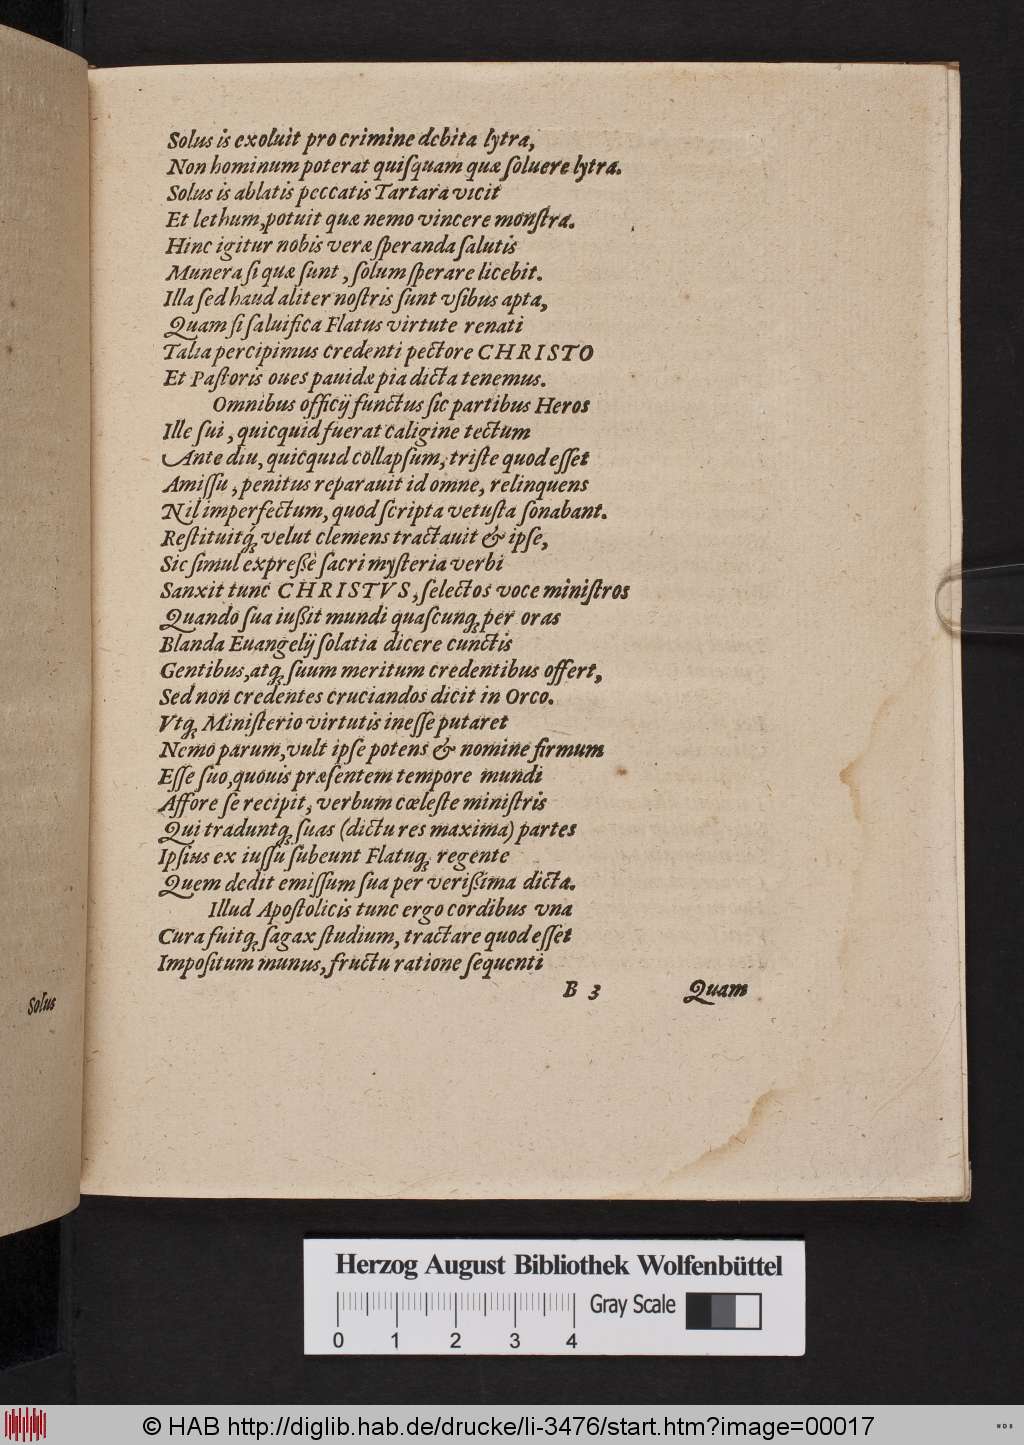 Solus is exoluit pro crimine debita lytra,
Non hominum poterat quiſquam quæ ſoluere lytra.
Solus is ablatis peccatis Tartara vicit
Et lethum, potuit quæ nemo vincere monſtra.
Hinc igitur nobis veræ ſperanda ſalutis
Munera ſi quæ ſunt, ſolum ſperare licebit.
Illa ſed haud aliter noſtris ſunt vſibus apta,
Quam ſi ſaluifica Flatus virtute renati
Talia percipimus credenti pectore CHRISTO
Et Paſtoris oues pauidæ pia dicta tenemus.
Omnibus officij functus ſic partibus Heros
Ille ſui, quicquid fuerat caligine tectum
Ante diu, quicquid collapſum, triſte quod eſſet
Amiſſu, penitus reparauit id omne, relinquens
Nil imperfectum, quod ſcripta vetuſta ſonabant.
Reſtituitq́ꝫ velut clemens tractauit & ipſe,
Sic ſimul expreßè ſacri myſteria verbi
Sanxit tunc CHRISTVS, ſelectos voce miniſtros
Quando ſua iußit mundi quaſcunqꝫ per oras
Blanda Euangelij ſolatia dicere cunctis
Gentibus, atqꝫ ſuum meritum credentibus offert,
Sed non credentes cruciandos dicit in Orco.
Vtqꝫ Miniſterio virtutis ineſſe putaret
Nemo parum, vult ipſe potens & nomine firmum
Eſſe ſuo, quouis præſentem tempore mundi
Affore ſe recipit, verbum cœleſte miniſtris
Qui traduntqꝫ ſuas (dictu res maxima) partes
Ipſius ex iuſſu ſubeunt Flatuqꝫ regente
Quem dedit emiſſum ſua per verißima dicta.
Illud Apoſtolicis tunc ergo cordibus vna
Cura fuitqꝫ ſagax ſtudium, tractare quod eſſet
Impoſitum munus, fructu ratione ſequenti
B 3 Quam
Solus
Herzog August Bibliothek Wolfenbüttel
Gray Scale
0 1 2 3 4
© HAB http://diglib.hab.de/drucke/li-3476/start.htm?image=00017